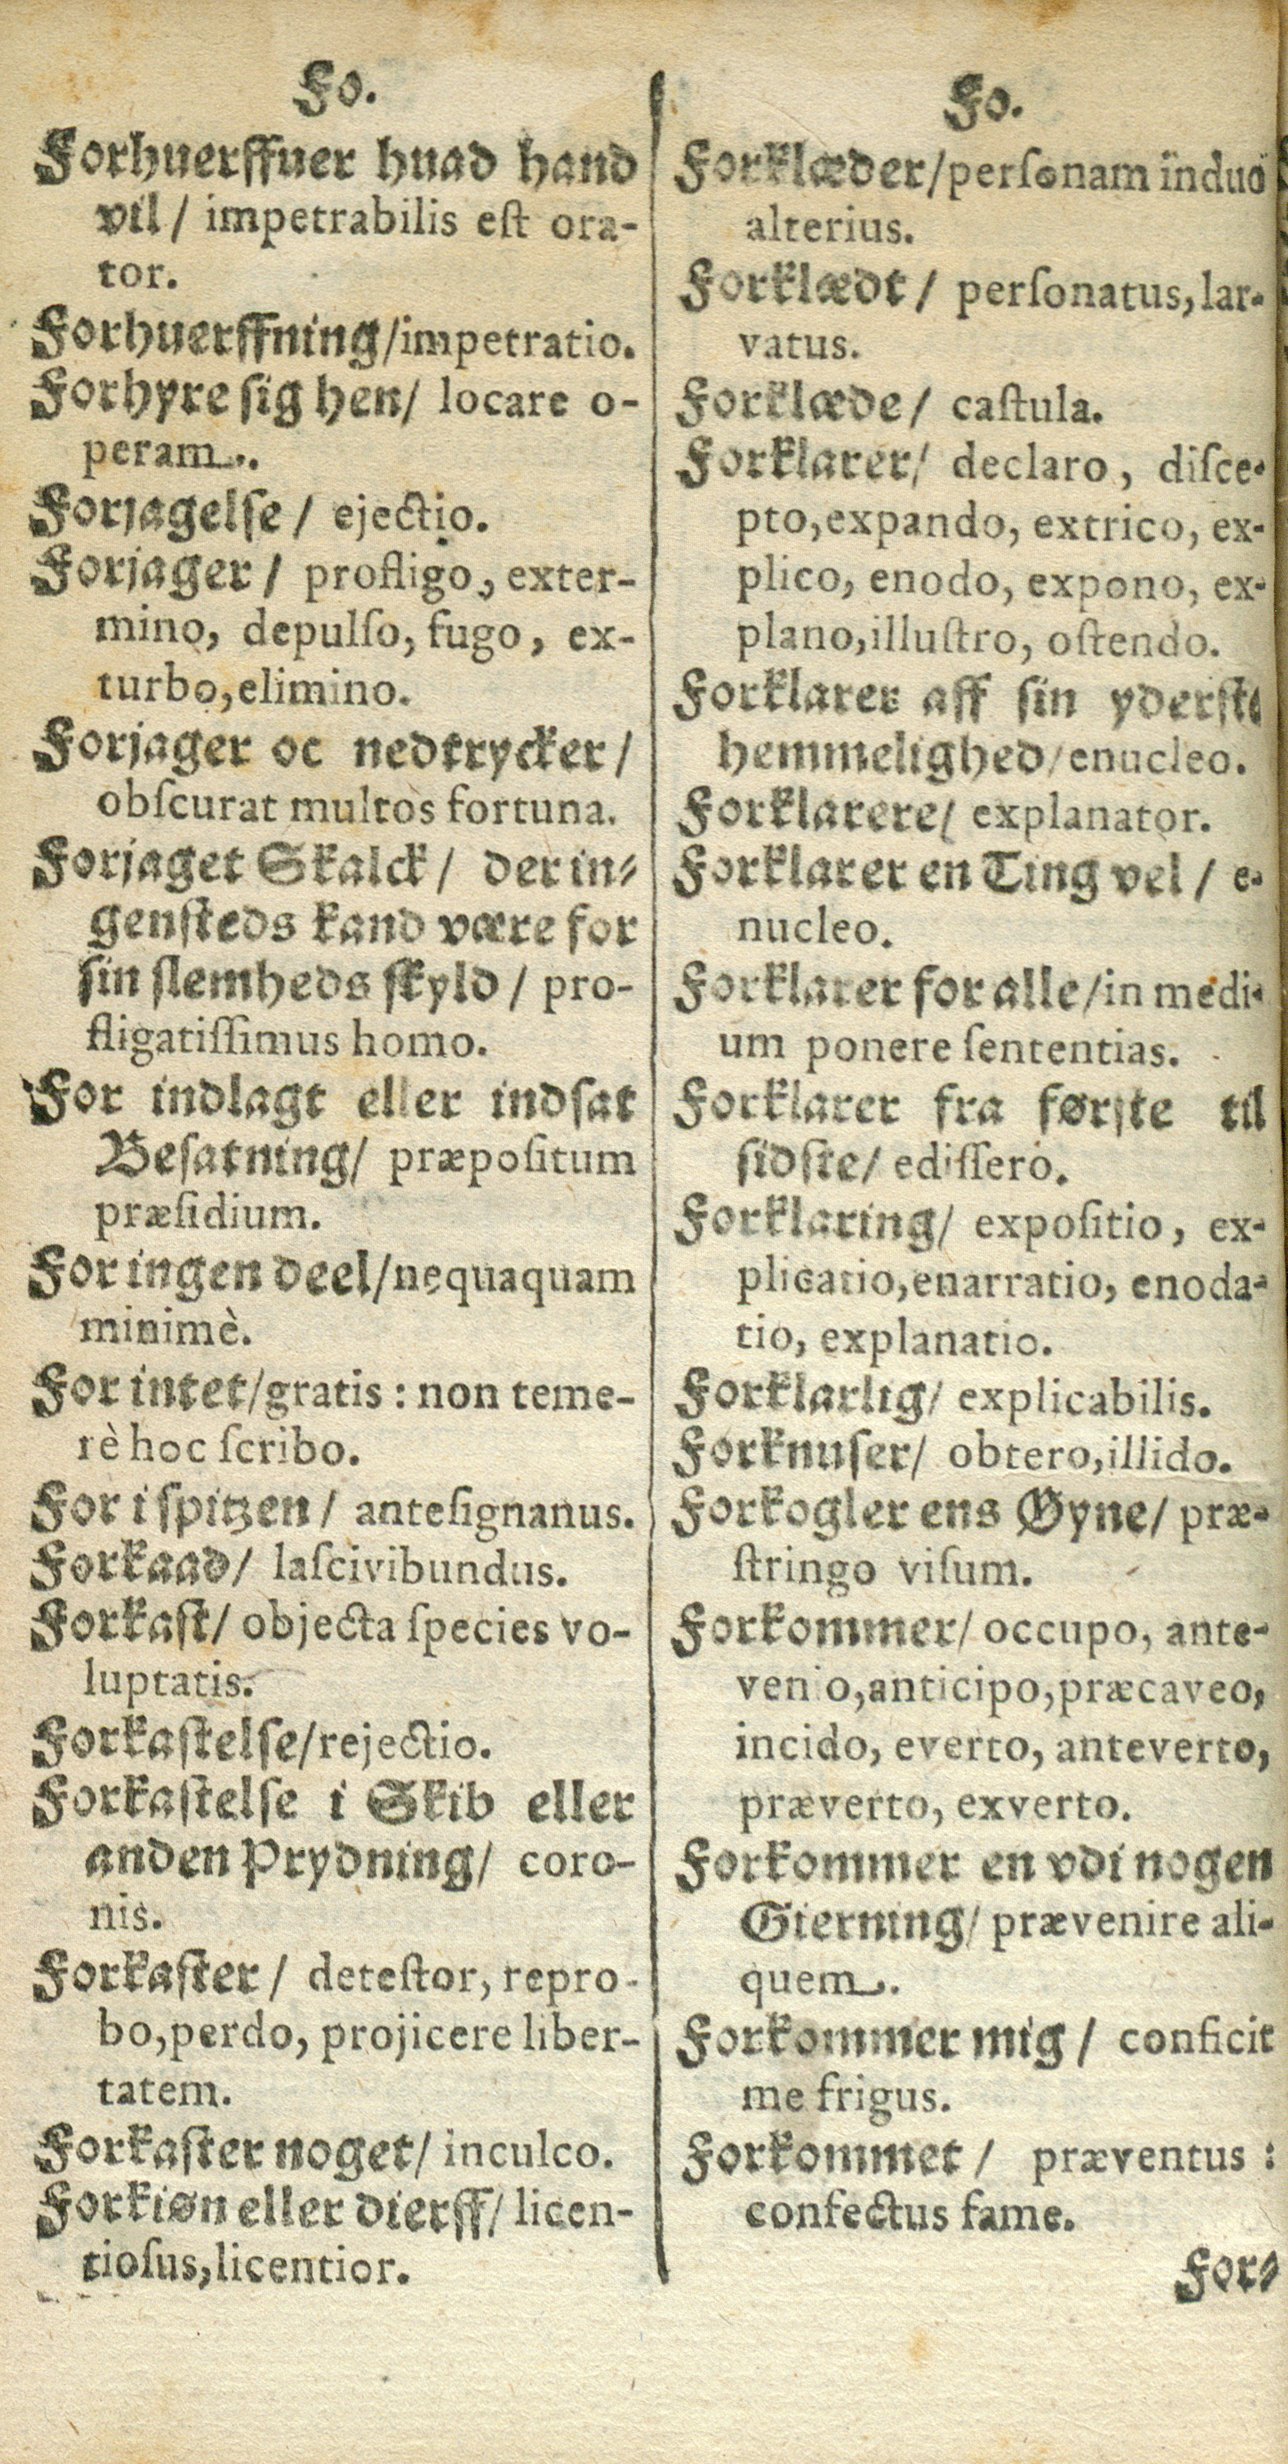 Fo.
Forhuerffuer huad hand
vil / impetrabilis eſt ora-
tor.
Forhuerffning/impetratio.
Forhyre ſig hen/ locare o-
peram.
Forjagelſe / ejectio.
Forjager / profligo, exter-
mino, depulſo, fugo, ex-
turbo,elimino.
Forjager oc nedtrycker /
obſcurat multos fortuna.
Forjaget Skalck / der in-
genſteds kand være for
ſin ſlemheds ſkyld / pro-
fligatiſſimus homo.
For indlagt eller indſat
Beſatning/ præpoſitum
præſidium.
For ingen deel/nequaquam
minimè.
For intet/gratis : non teme-
rè hoc ſcribo.
For i ſpitzen / anteſignanus.
Forkaad/ laſcivibundus.
Forkaſt/ objecta ſpecies vo-
luptatis.
Forkaſtelſe/rejectio.
Forkaſtelſe i Skib eller
anden Prydning/ coro-
nis.
Forkaſter / deteſtor, repro-
bo,perdo, projicere liber-
tatem.
Forkaſter noget/ inculco.
Forkiøn eller dierff/ licen-
tioſus,licentior.
Fo.
Forklæder/perſonam induo
alterius.
Forklædt / perſonatus,lar-
vatus.
Forklæde/ caſtula.
Forklarer/ declaro, diſce-
pto,expando, extrico, ex-
plico, enodo, expono, ex-
plano,illuſtro, oſtendo.
Forklarer aff ſin yderſte
hemmelighed/enucleo.
Forklarere/ explanator.
Forklarer en Ting vel / e-
nucleo.
Forklarer for alle/in medi-
um ponere ſententias.
Forklarer fra førſte til
ſidſte/ ediſſero.
Forklaring/ expoſitio, ex-
plicatio,enarratio, enoda-
tio, explanatio.
Forklarlig/ explicabilis.
Forknuſer/ obtero,illido.
Forkogler ens Øyne/ præ-
ſtringo viſum.
Forkommer/ occupo, ante-
venio,anticipo,præcaveo,
incido, everto, anteverto,
præverto, exverto.
Forkommer en vdi nogen
Gierning/ prævenire ali-
quem.
Forkommer mig / conficit
me frigus.
Forkommet / præventus :
confectus fame.
For-